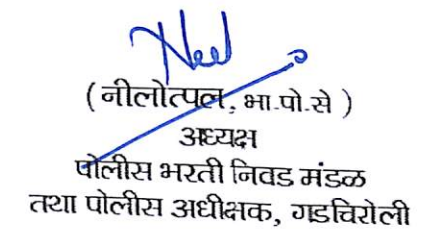 Neel
(नीलोत्पल, भा.पो.से )
अध्यक्ष
पोलीस भरती निवड मंडळ
तथा पोलीस अधीक्षक, गडचिरोली